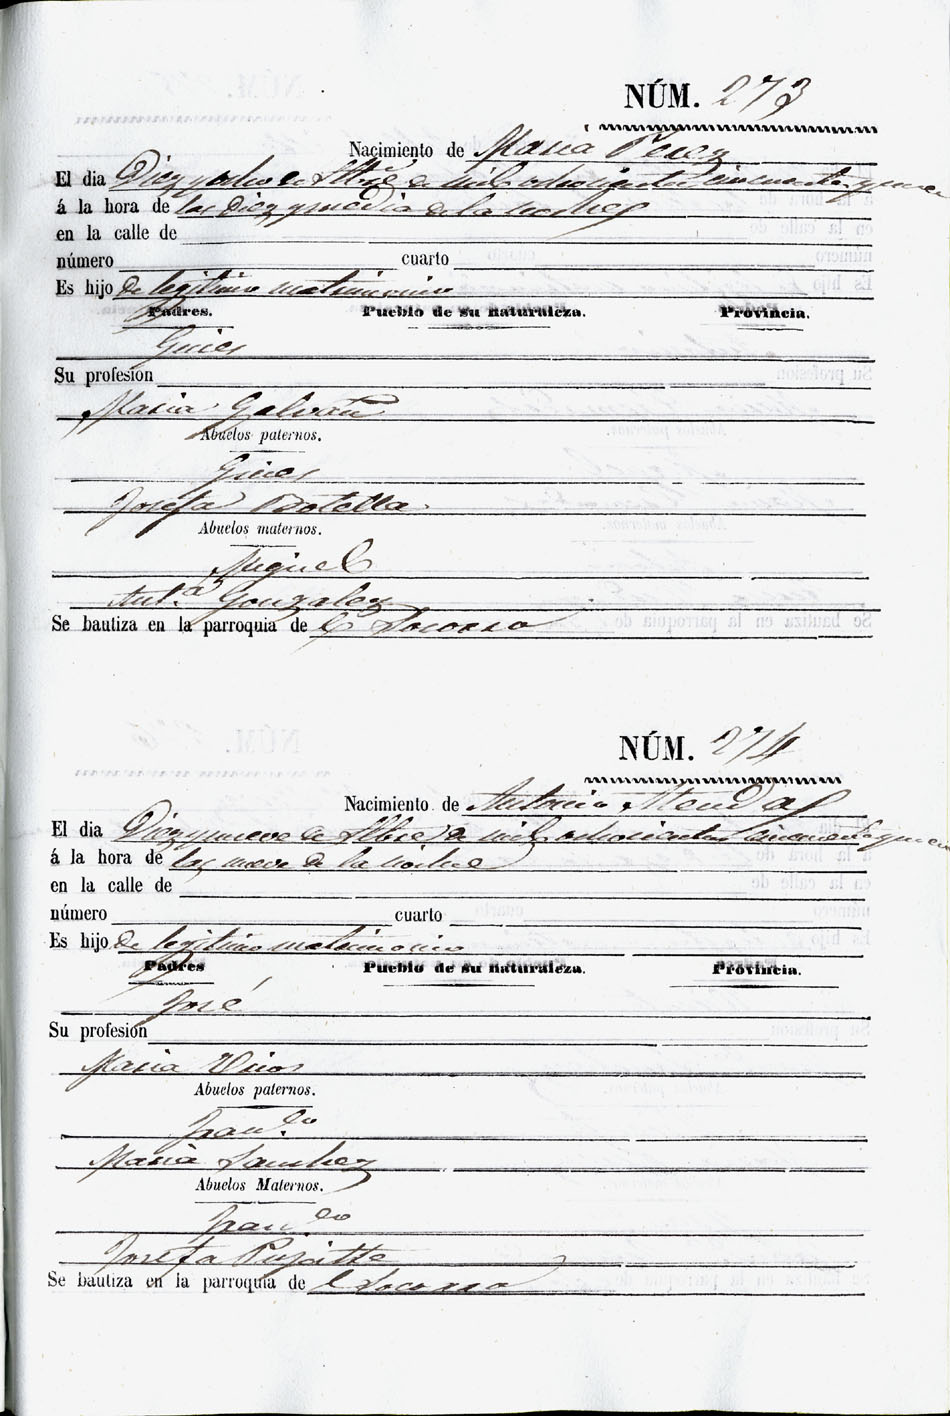 NÚM. 273
Nacimiento de Maria Perez
El dia Diez y ocho de Stbre de mil ochocientos cincuenta y nueve
á la hora de las diez y media de la noche
en la calle de
número cuarto
Es hijo de legitimo matrimonio
Padres. Pueblo de su naturaleza. Provincia.
Gines
Su profesion
Maria Galvañ
Abuelos paternos.
Gines
Josefa Botella
Abuelos maternos.
Miguel
Ant.ª Gonzalez
Se bautiza en la parroquia de el Socorro
NÚM. 274
Nacimiento de Antonio
El dia Diez y nueve de Stbre de mil ochocientos cincuenta y nueve
á la hora de las nueve de la noche
en la calle de
número cuarto
Es hijo de legitimo matrimonio
Padres Pueblo de su naturaleza. Provincia.
José
Su profesion
Maria
Abuelos paternos.
Fran.co
Maria Sanchez
Abuelos Maternos.
Fran.co
Josefa
Se bautiza en la parroquia de el Socorro